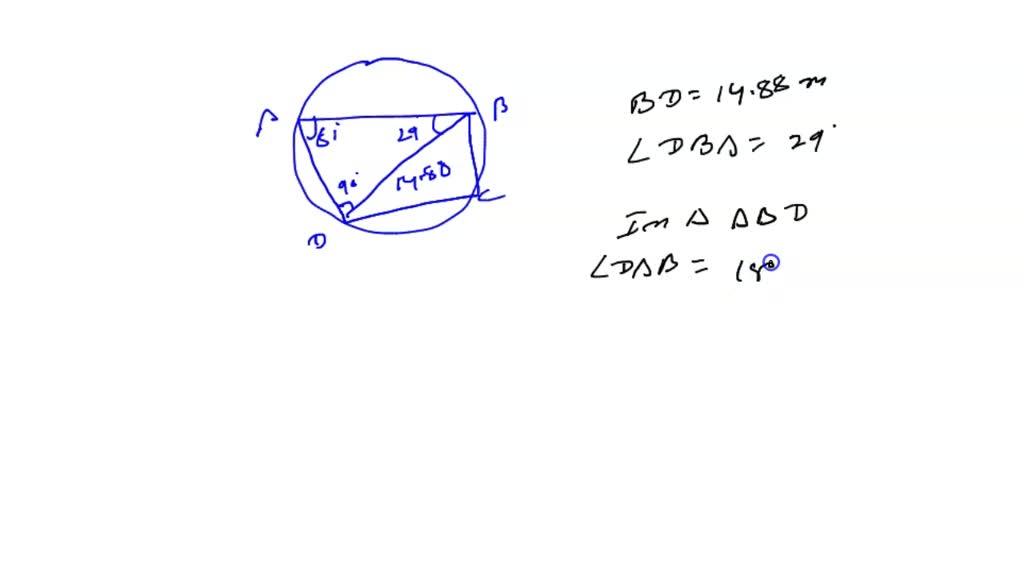 A
B
61
29
90
14.88
C
D
BD = 14.88 m
∠DBA = 29°
In Δ ABD
∠DAB = 18